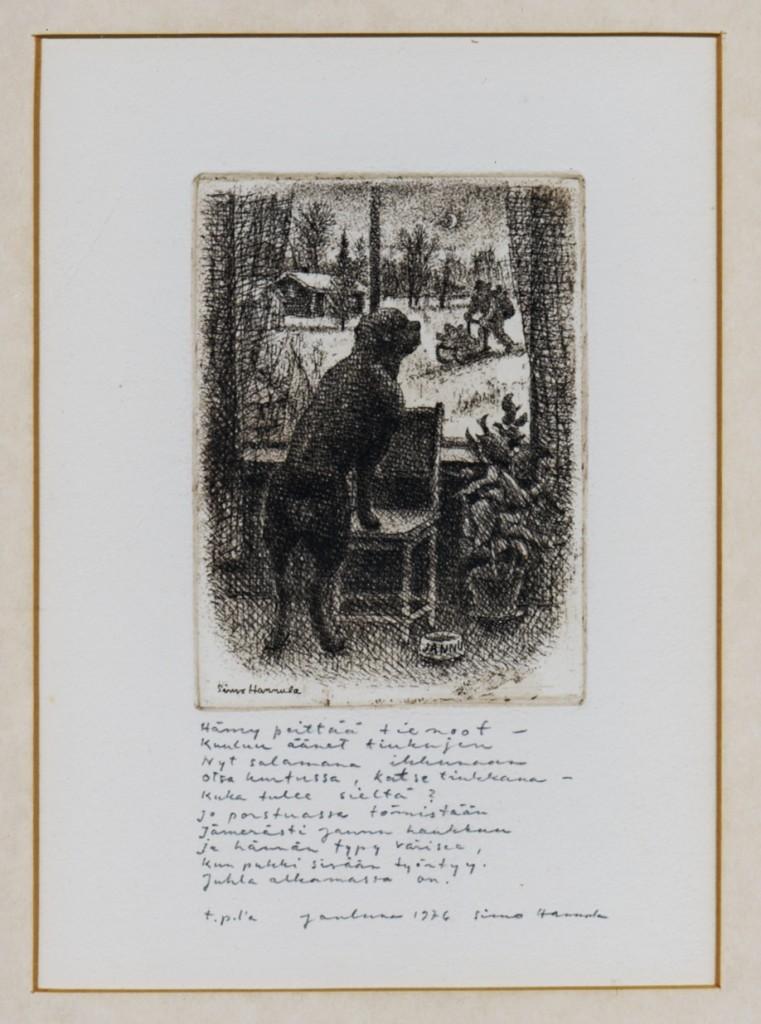 JANNU
Simo Hannula
Hämy peittää tienoot –
Kuuluu äänet tiukujen
Nyt salamana ikkunaan
otsa kurtussa, katse tiukkana –
Kuka tulee sieltä?
Jo porstuassa tömistään
Jämerästi Jannu haukkuu
ja hännän typy värisee,
Kun pukki sisään työntyy.
Juhla alkamassa on.
t.p.l'a jouluna 1976 Simo Hannula